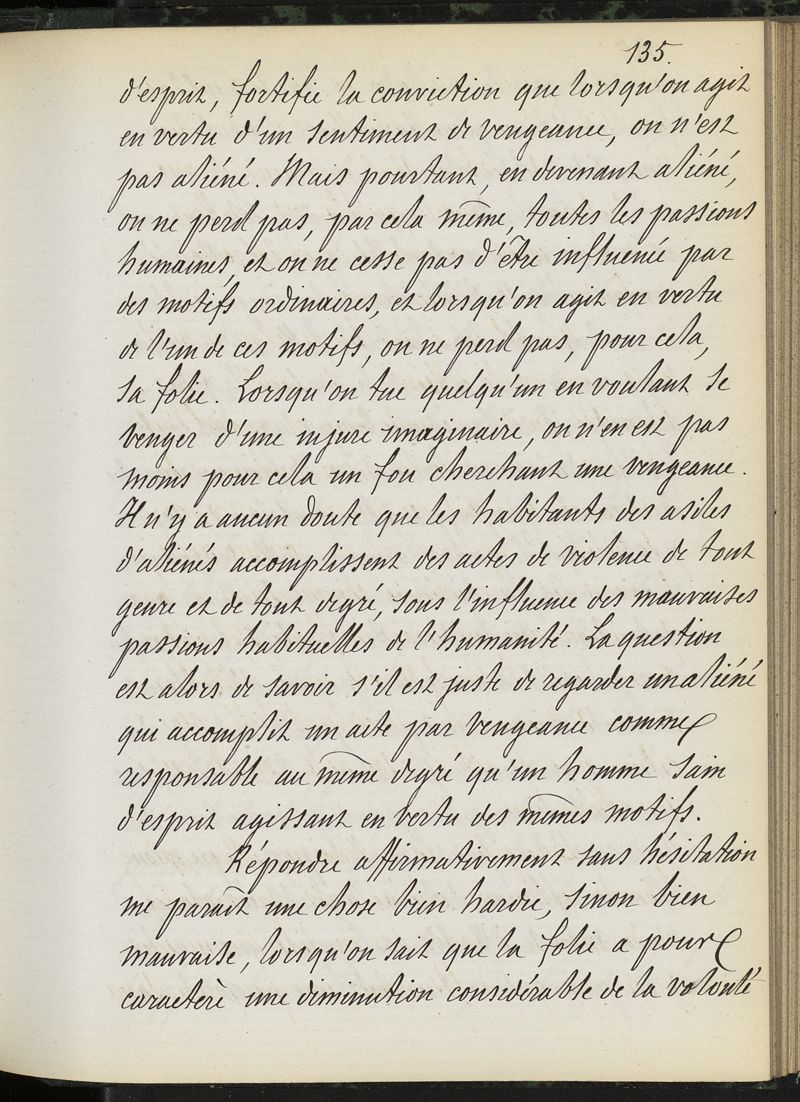 135.
d'esprit, fortifie la conviction que lorsqu'on agit
en vertu d'un sentiment de vengeance, on n'est
pas aliéné. Mais pourtant, en devenant aliéné,
on ne perd pas, par cela même, toutes les passions
humaines, et on ne cesse pas d'être influencé par
des motifs ordinaires, et lorsqu'on agit en vertu
de l'un de ces motifs, on ne perd pas, pour cela,
sa folie. Lorsqu'on tue quelqu'un en voulant se
venger d'une injure imaginaire, on n'en est pas
moins pour cela un fou cherchant une vengeance.
Il n'y a aucun doute que les habitants des asiles
d'aliénés accomplissent des actes de violence de tout
genre et de tout degré, sous l'influence des mauvaises
passions habituelles de l'humanité. La question
est alors de savoir s'il est juste de regarder un aliéné
qui accomplit un acte par vengeance comme
responsable au même degré qu'un homme sain
d'esprit agissant en vertu des mêmes motifs.
Répondre affirmativement sans hésitation
me paraît une chose bien hardie, sinon bien
mauvaise, lorsqu'on sait que la folie a pour
caractère une diminution considérable de la volonté